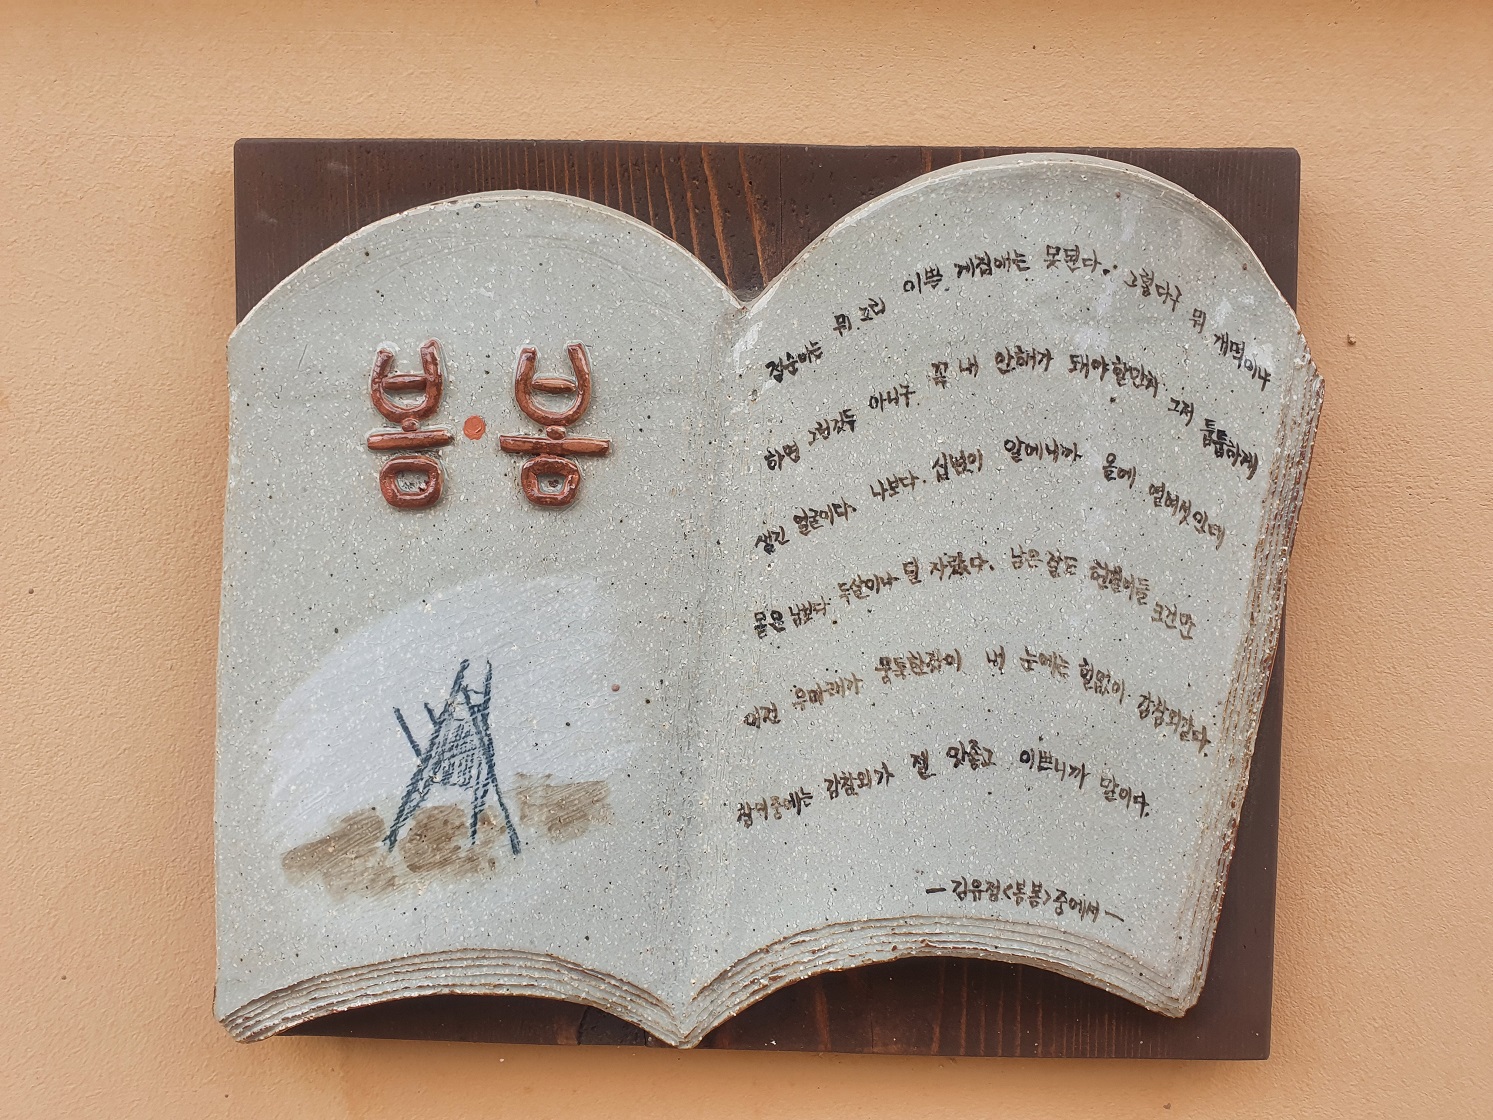 봄·봄
점순이는 뭐 그리 이쁜 계집애는 못된다. 그렇다구 뭐 개떡이냐
하면 그런것두 아니구 꼭 내 안해가 돼야할만치 그저 툽툽하게
생긴 얼굴이다. 나보다 십년이 알에니까 올에 열여섯인데
몸은 남보다 두살이나 덜 자랐다. 남은 잘도 헌칠이들 크건만
이건 우아래가 뭉툭한것이 내 눈에는 헐없이 감참외같다.
참외중에는 감참외가 젤 맛좋고 이쁘니까 말이다.
-김유정<봄봄>중에서-